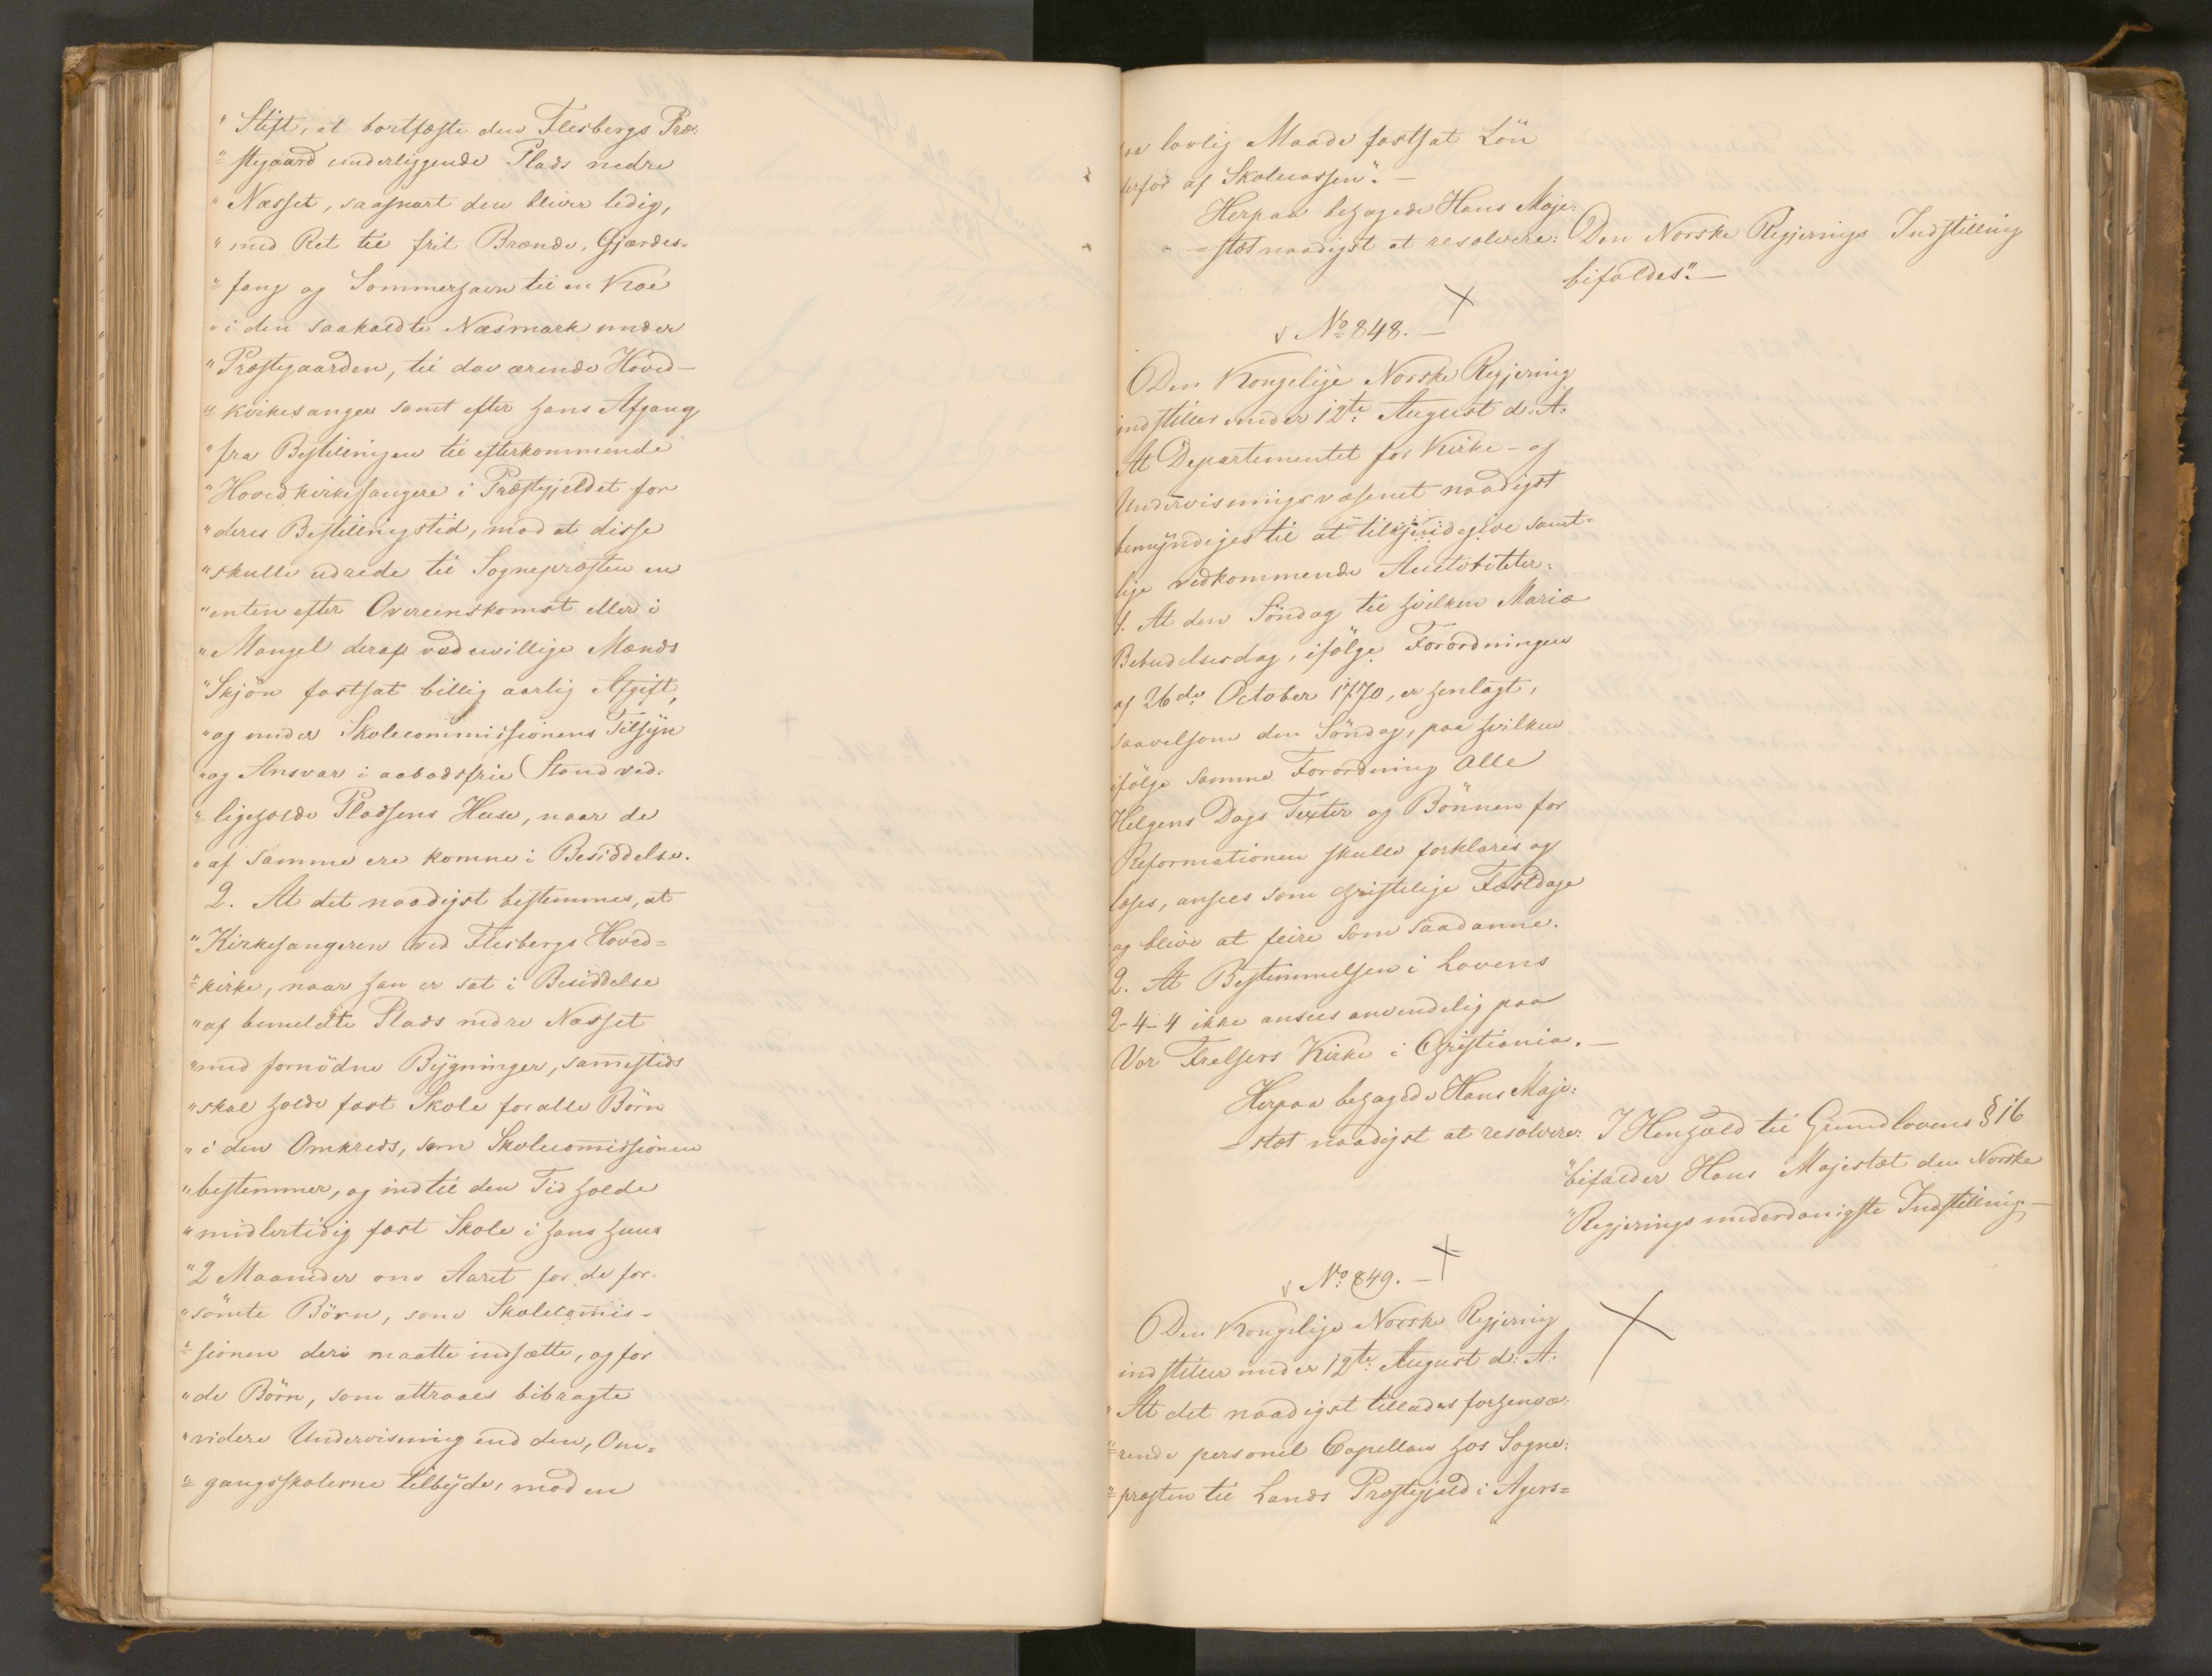 " Stift, at bortfæste den Flesbergs Præ:
" stegaard underliggende Plads nedre
" Næsset, saasnart den bliver ledig,
" med Ret til frit Brænde, Gjærdes=
" fang og Sommerhavn til en Koe
" i den saakaldte Næsmark under
" Præstegaarden, til da værende Hoved-
" kirkesanger samt efter hans Afgang
" fra Bestillingen til efterkommende
" Hovedkirkesangere i Præstegjeldet for
" deres Bestillingstid, mod at disse
" skulle udrede til Sognepræsten en
" enten efter Overeinskomst eller i
" Mangel deraf ved uvillige Mænds
" Skjön fastsat billig aarlig Afgift,
" og under Skolecommissionens Tilsÿn
" og Ansvar i aabodsfrie Stand ved:
" ligeholde Pladsens Huse, naar de
" af samme ere komne i Besiddelse.
2. At det naadigst bestemmes, at
" Kirkesangeren ved Flesbergs Hoved=
" kirke, naar han er sat i Besiddelse
" af bemeldte Plads nedre Næsset
" med fornödne Bÿgninger, sammesteds
" skal holde fast Skole for alle Börn
" i den Omkreds, som Skolecomissionen
" bestemmer, og indtil den Tid holde
" midlertidig fast Skole i hans Huus
" 2 Maaneder om Aaret for de for-
" sömte Börn, som Skolecomis-
" sionen deri maatte indsætte, og for
" de Börn, som attraaes bibragte
" videre Underviisning end den, Om=
" gangsskolerne tilbÿde, mod en
paa lovlig Maade fastsat Lön
derfor af Skolecassen". —
Herpaa behagede Hans Maje:
= stæt naadigst at resolvere: Den Norske Regjerings Indstilling
bifaldes". —
No 848. —
Den Kongelige Norske Regjering
indstiller under 12te August d: A:
At Departementet for Kirke- og
Underviisningsvæsenet naadigst
bemÿndiges til at tilkjendegive samt=
lige vedkommende Auctoriteter:
1. At den Söndag til hvilken Mariæ
Bebudelsesdag, ifölge Forordningen
af 26de October 1770, er henlagt,
saavelsom den Söndag, paa hvilken
ifölge samme Forordning Alle
Helgens Dags Texter og Bönnen for
Reformationen skulle forklares og
læses, ansees som christelige Festdage
og blive at feire som saadanne.
2. At Bestemmelsen i Lovens
2-4-4 ikke ansees anvendelig paa
Vor Frelsers Kirke i Christiania. —
Herpaa behagede Hans Maje:
= stæt naadigst at resolvere: I Henhold til Grundlovens § 16
" bifalder Hans Majestæt den Norske
" Regjerings underdanigste Indstilling. —
No 849. —
Den Kongelige Norske Regjering
indstiller under 12te August d: A:
" At det naadigst tillades forhenvæ:
" rende personel Capellan hos Sogne:
" præsten til Lands Præstegjeld i Agers=